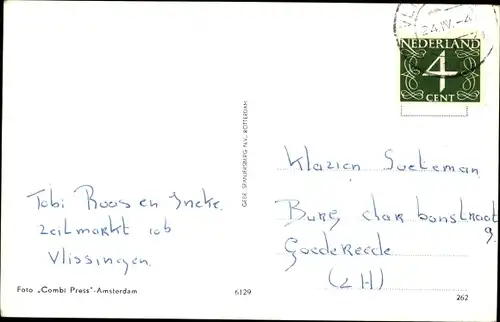 VL
24.IV.-4
NEDERLAND
4
CENT
GEBR. SPANJERSBERG N.V., ROTTERDAM
Klazien Soeteman
Burg
Goedereede
(ZH)
Tobi Roos en Ineke.
Zeilmarkt 10b
Vlissingen.
Foto „Combi Press"-Amsterdam
6129
262